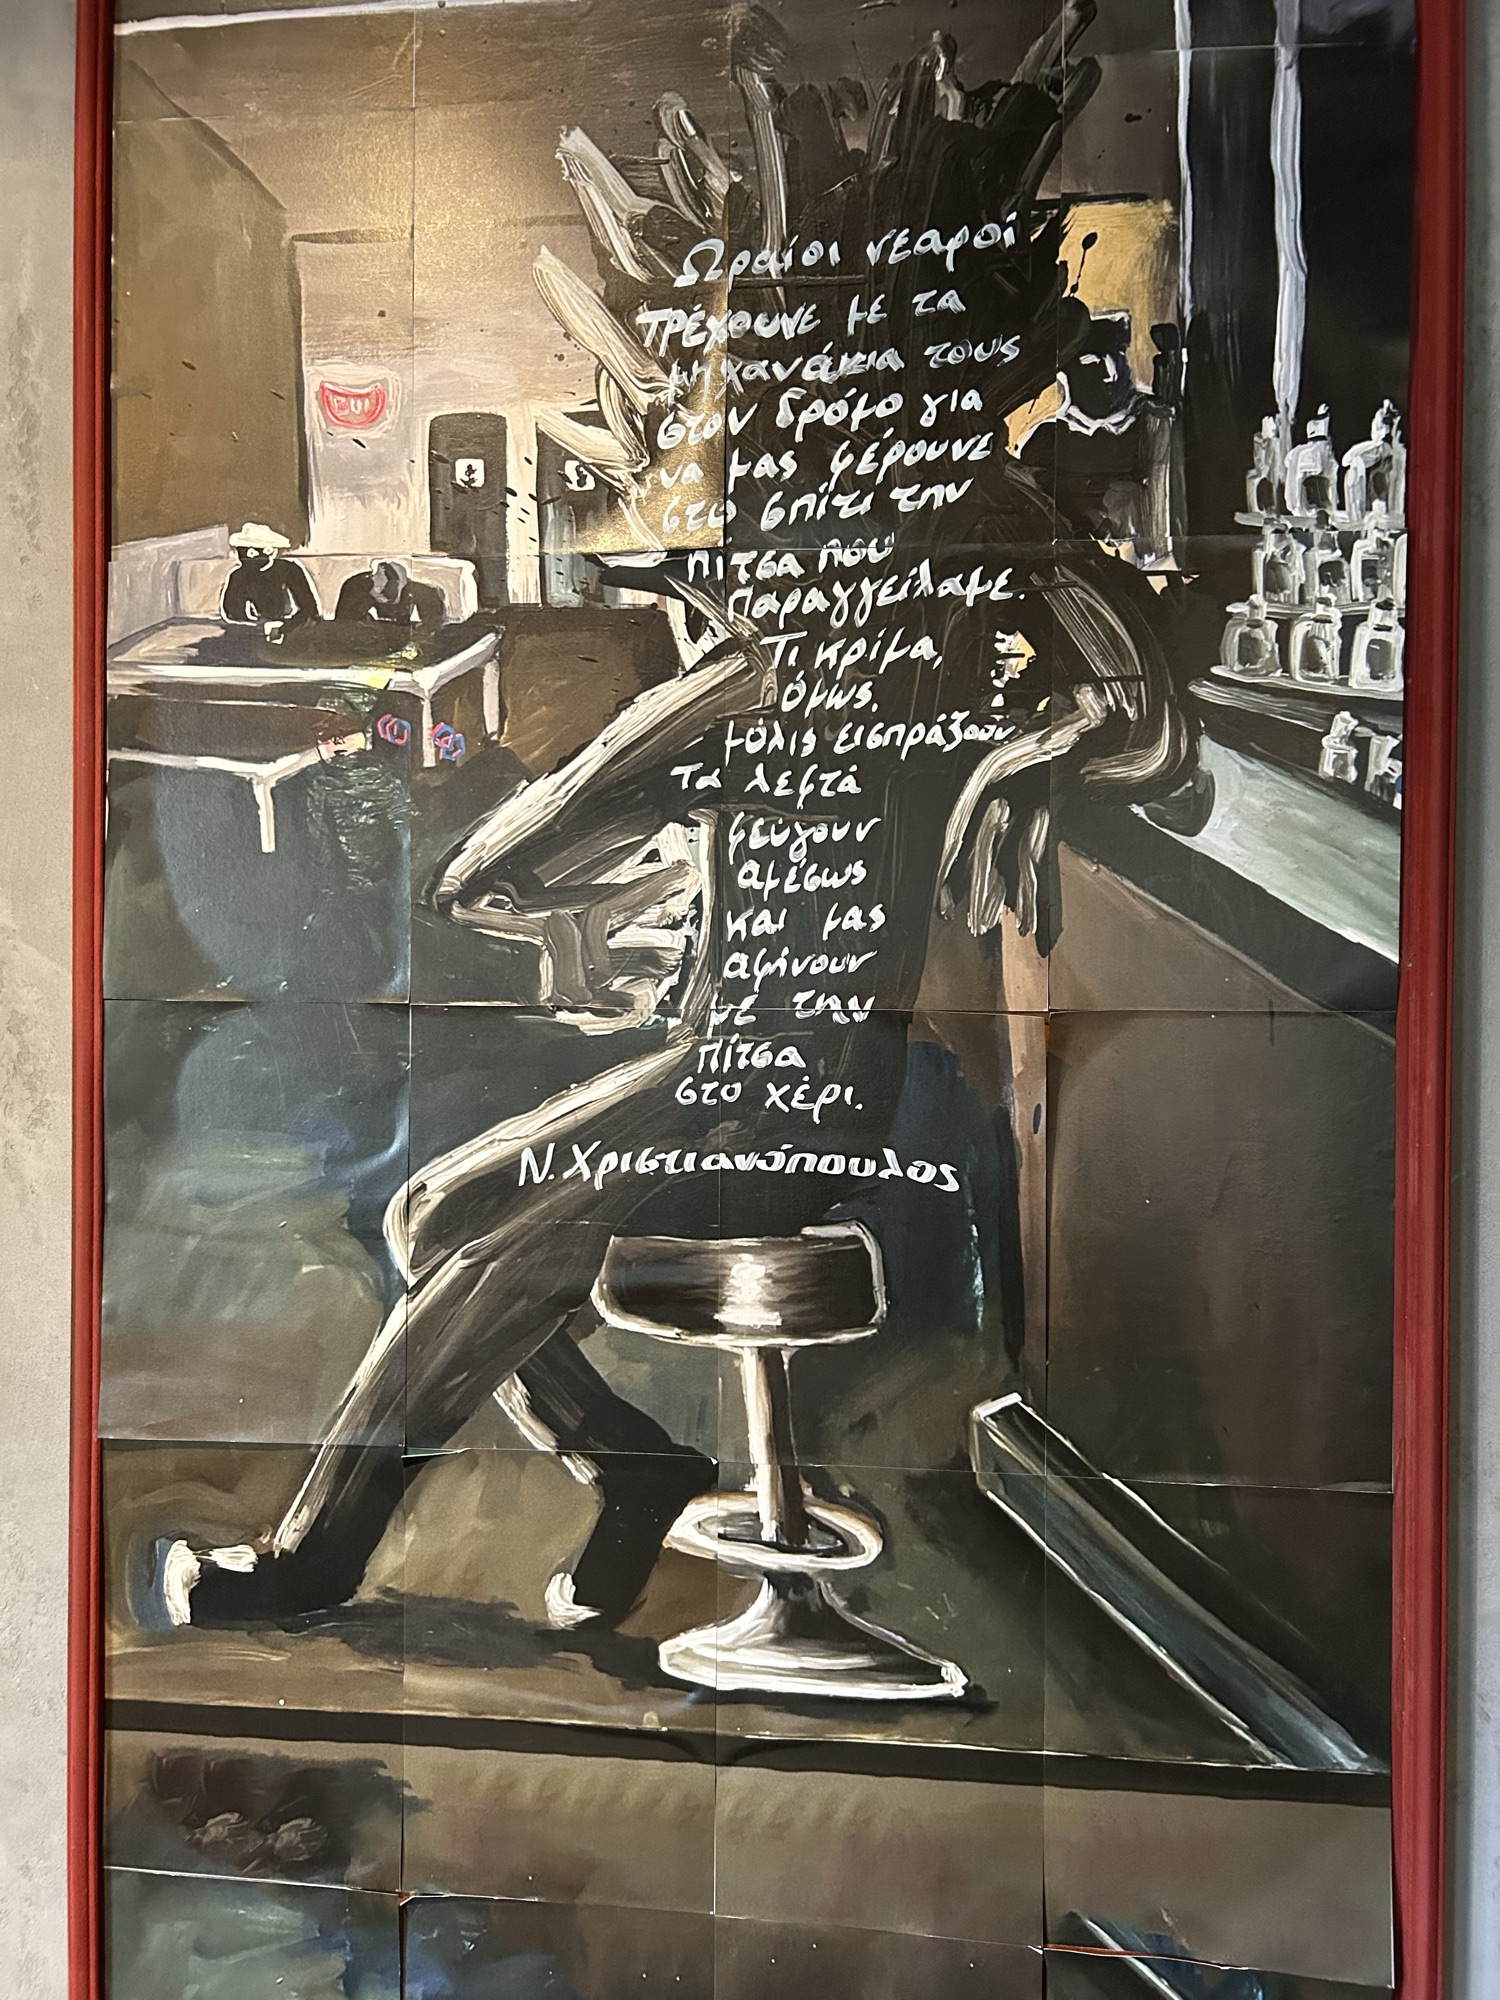 Ωραίοι νεαροί
τρέχουνε με τα
μηχανάκια τους
στον δρόμο για
να μας φέρουνε
στο σπίτι την
πίτσα που
παραγγείλαμε.
Τι κρίμα,
όμως,
μόλις εισπράξουν
τα λεφτά
φεύγουν
αμέσως
και μας
αφήνουν
με την
πίτσα
στο χέρι.
Ν. Χριστιανόπουλος